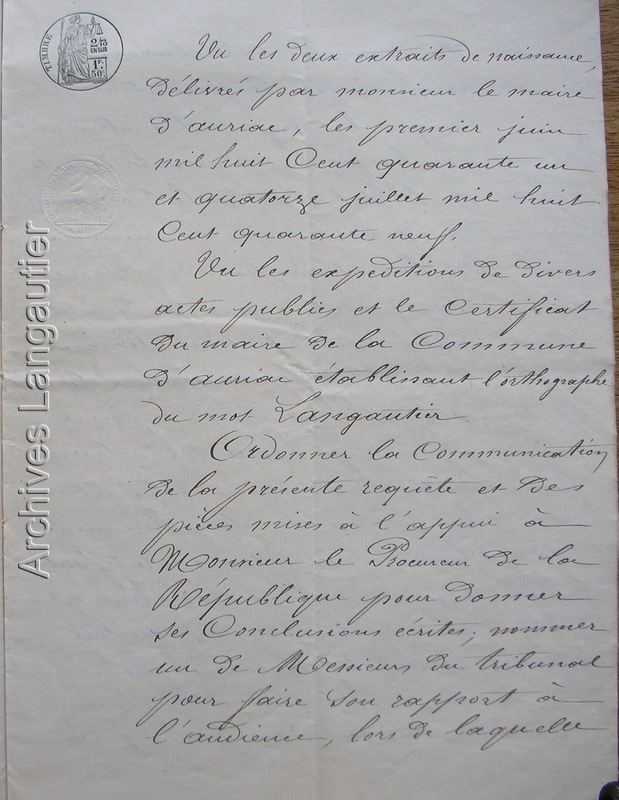 TIMBRE
2/10
EN SUS
1F
50c
Vu les deux extraits de naissance,
délivrés par monsieur le maire
d'auriac, les premier juin
mil huit Cent quarante un
et quatorze juillet mil huit
Cent quarante neuf.
Vu les expeditions de divers
actes publics et le Certificat
du maire de la Commune
d'auriac établissant l'orthographe
du mot Langautier.
Ordonner la Communication
de la présente requête et des
pièces mises à l'appui à
Monsieur le Procureur de la
République pour donner
ses Conclusions écrites, nommer
un de Messieurs du tribunal
pour faire son rapport à
l'audience, lors de laquelle
Archives Langautier